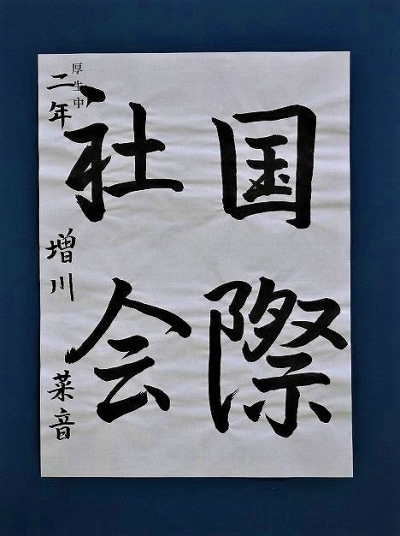 国際
社会
厚生中
二年 増川 菜音